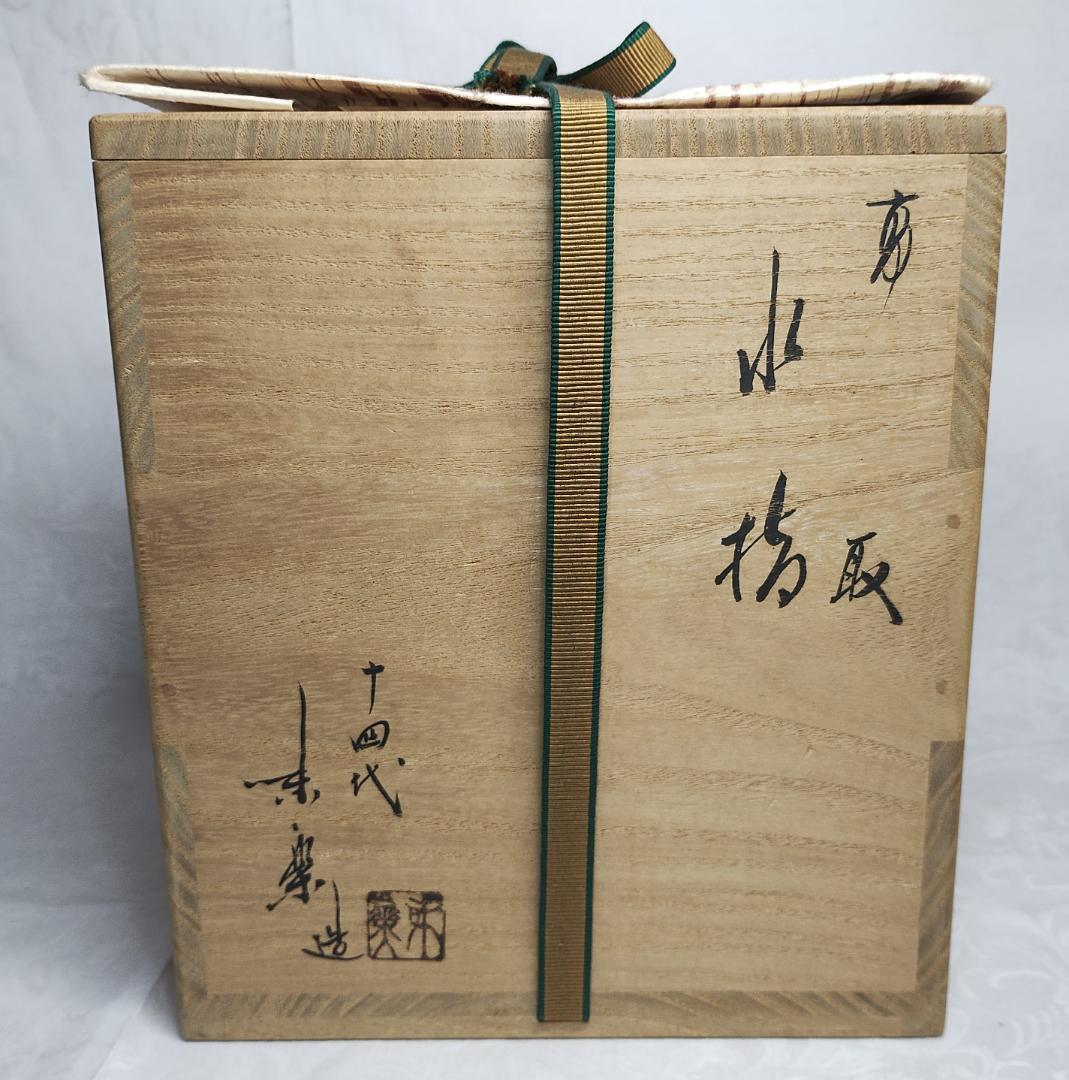 高取
水指
十四代
味楽造